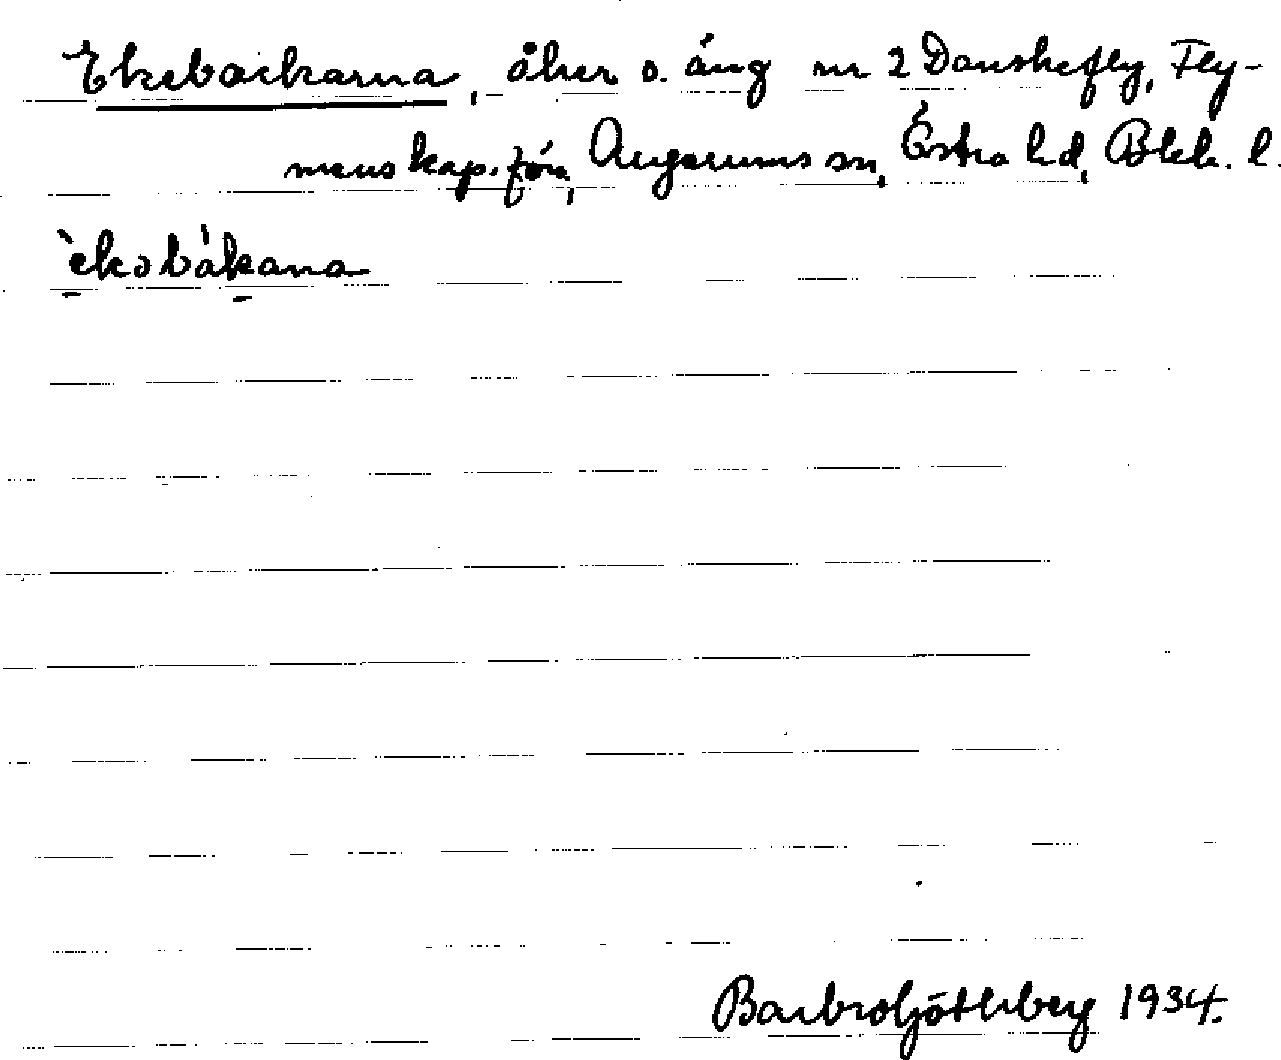 Ekebackarna, åker o. äng nr 2 Danskefly, Fly-
menskap.förs, Augerums sn, Östra hd, Blek. l.
ekəbákana
Barbro Götlberg 1934.